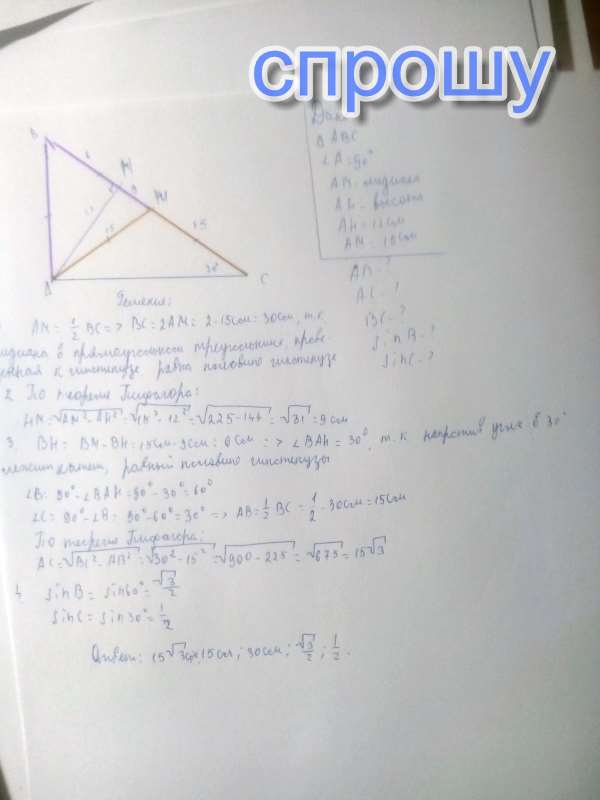 спрошу
Дано
Δ ABC
∠A=90°
AM - медиана
AH - высота
AH = 12 см
AM = 15 см
AB - ?
AC - ?
BC - ?
sin B - ?
sin C - ?
B
6
H
9
M
12
15
15
30°
A
C
Решение:
AM = 1/2 BC => BC = 2AM = 2·15см = 30см, т.к.
медиана в прямоугольном треугольнике, прове-
денная к гипотенузе равна половине гипотенузе
2 По теореме Пифагора:
HM = √AM²-AH² = √15²-12² = √225-144 = √81 = 9 см
3. BH = BM - BH = 15см - 9см = 6 см => ∠BAH = 30°, т.к напротив угла в 30°
лежит катет, равный половине гипотенузы
∠B = 90° - ∠BAH = 90° - 30° = 60°
∠C = 90° - ∠B = 90° - 60° = 30° => AB = 1/2 BC = 1/2 · 30см = 15см
По теореме Пифагора:
AC = √BC² - AB² = √30² - 15² = √900 - 225 = √675 = 15√3
4. sin B = sin 60° = √3/2
sin C = sin 30° = 1/2
Ответ: 15√3см, 15см; 30см; √3/2; 1/2.